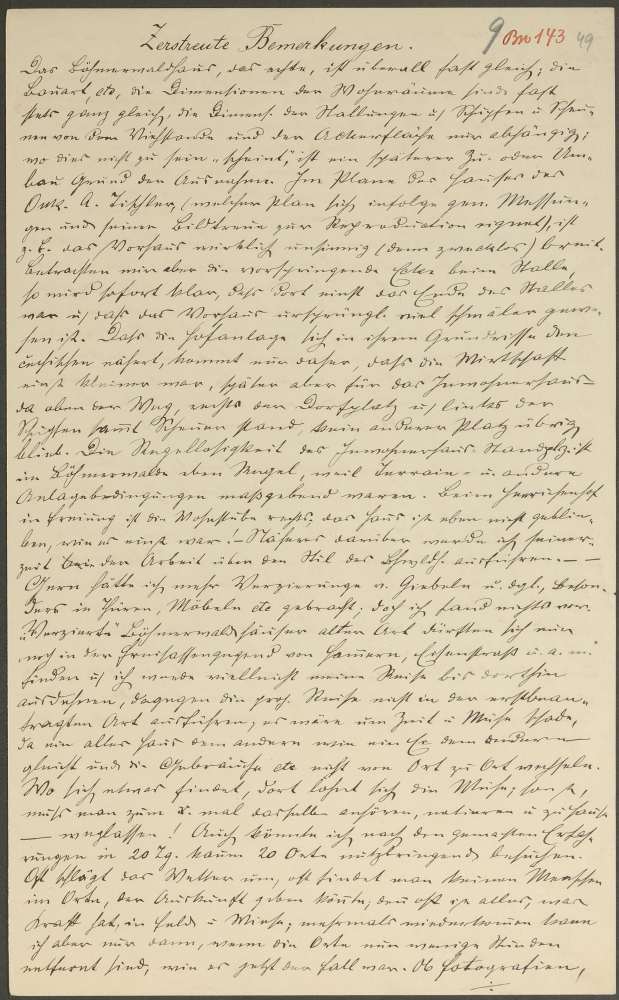 9 Bn 143 49
Zerstreute Bemerkungen.
Das Böhmerwaldhaus, das echte, ist überall fast gleich; die
Bauart, etc, die Dimensionen der Wohnräume sind fast
stets ganz gleich, die Dimens. der Stallungen u/ Schupfen u Scheu-
nen von dem Viehstande und der Ackerfläche nur abhängig;
wo dies nicht zu sein „scheint“, ist ein späterer Zu- oder Um-
bau Grund der Ausnahme. Im Plane des Hauses des
A. Tischler, (welcher Plan sich infolge gen. Messun-
gen und seiner Bildtreue zur Reproduction eignet), ist
z. B. das Vorhaus wirklich unsinnig (denn zwecklos) breit.
Betrachten wir aber die vorspringende Ecke beim Stalle,
so wird sofort klar, dass dort einst das Ende des Stalles
war u/ dass das Vorhaus ursprüngl. viel schmäler gewe-
sen ist. Dass die Hofanlage sich in ihrem Grundrisse den
čechischen nähert, kommt nur daher, dass die Wirtschaft
einst kleiner war, später aber für das Inwohnerhaus –
da oben der Weg, rechts der Dorfplatz u/ links der
Schupfen samt Scheuer stand, kein anderer Platz übrig
blieb. Die Regellosigkeit des Inwohnerhaus-Standplz. ist
im Böhmerwalde eben Regel, weil Terrain- u. andere
Anlagebedingungen massgebend waren. Beim
in Freiung ist die Wohnstube rechts; das Haus ist eben nicht geblie-
ben, wie es einst war. – Näheres darüber werde ich seiner-
zeit bei der Arbeit über den Stil des Bhmwldh. ausführen. – –
Gern hätte ich mehr Verzierungen v. Giebeln u. dgl., beson-
ders in Thüren, Möbeln etc gebracht; doch ich fand nichts vor.
Verzierte Böhmerwaldhäuser alter Art dürften sich nur
noch in der Freisassengegend von Hammern, Eisenstrass u. a. m.
finden u/ ich werde vielleicht meine Reise bis dorthin
ausdehnen, dagegen die proj. Reise nicht in der erstbean-
tragten Art ausführen; es wäre um Zeit u Mühe schade,
da ein altes Haus dem andern wie ein Ei dem anderen
gleicht und die Gebräuche etc nicht von Ort zu Ort wechseln.
Wo sich etwas findet, dort lohnt sich die Mühe; sonst,
muss man zum x. mal dasselbe anhören, notieren u zuhause
— weglassen! Auch könnte ich nach den gemachten Erfah-
rungen in 20 Tg. kaum 20 Orte nutzbringend besuchen.
Oft schlägt das Wetter um, oft findet man keinen Menschen
im Orte, der Auskunft geben könnte, denn oft ist alles, was
Kraft hat, in Feld u Wiese; mehrmals wiederkommen kann
ich aber nur dann, wenn die Orte nur wenige Stunden
entfernt sind, wie es jetzt der Fall war. Ob Fotografien,